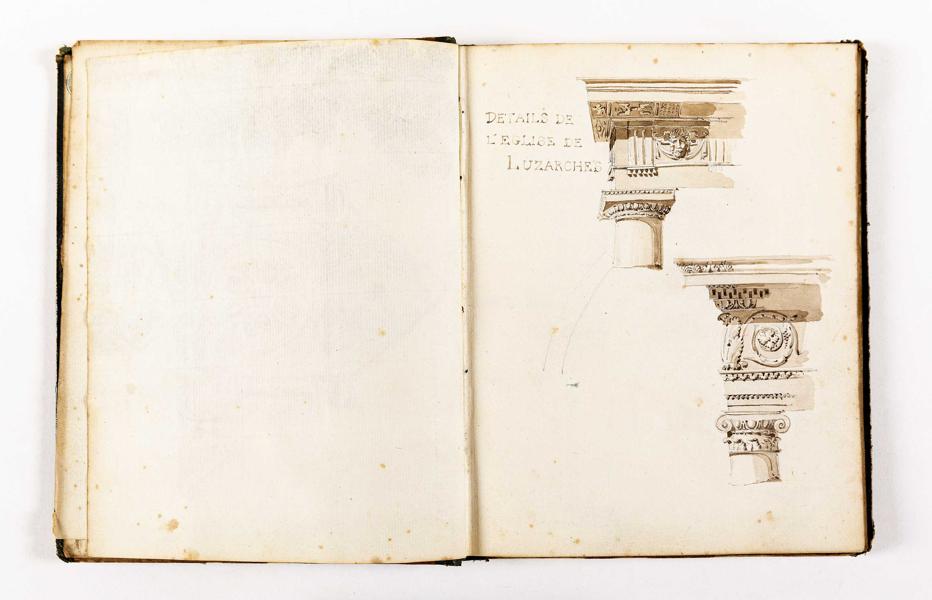 DETAILS DE
L'EGLISE DE
LUZARCHES